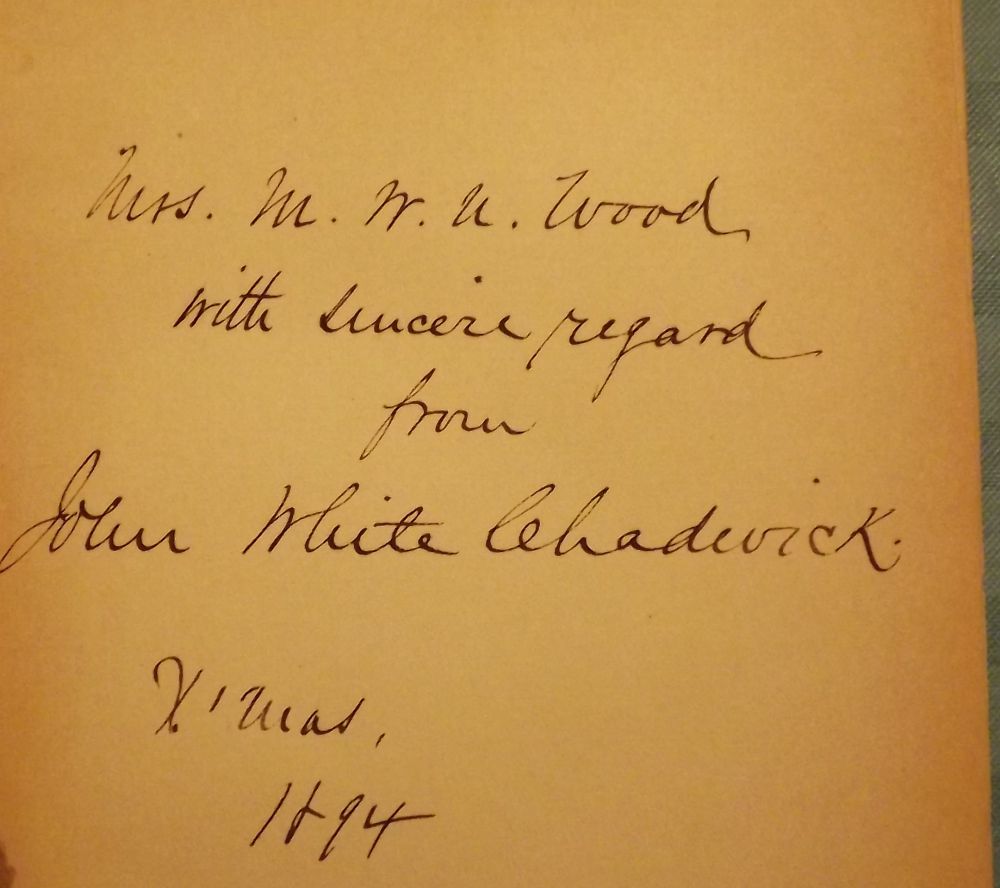 Mrs. M. W. N. Wood
with sincere regard
from
John White Chadwick.
X'mas,
1894